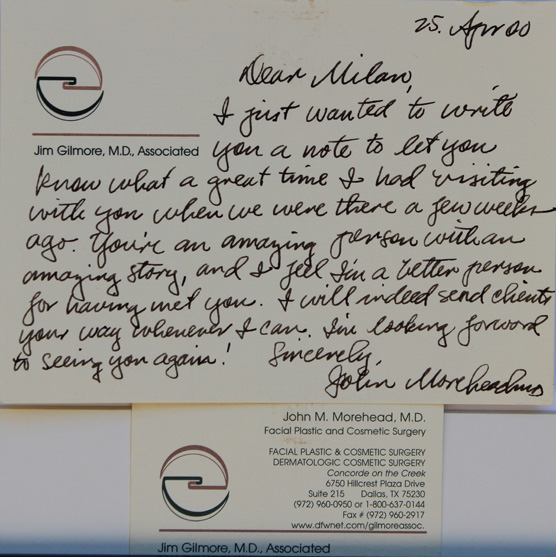 25. Apr 00
Dear Milan,
I just wanted to write
Jim Gilmore, M.D., Associated
you a note to let you
know what a great time I had visiting
with you when we were there a few weeks
ago. You're an amazing person with an
amazing story, and I feel I'm a better person
for having met you. I will indeed send clients
your way whenever I can. I'm looking forward
to seeing you again!
Sincerely,
John Morehead MD
John M. Morehead, M.D.
Facial Plastic and Cosmetic Surgery
FACIAL PLASTIC & COSMETIC SURGERY
DERMATOLOGIC COSMETIC SURGERY
Concorde on the Creek
6750 Hillcrest Plaza Drive
Suite 215 Dallas, TX 75230
(972) 960-0950 or 1-800-637-0144
Fax # (972) 960-2917
www.dfwnet.com/gilmoreassoc.
Jim Gilmore, M.D., Associated